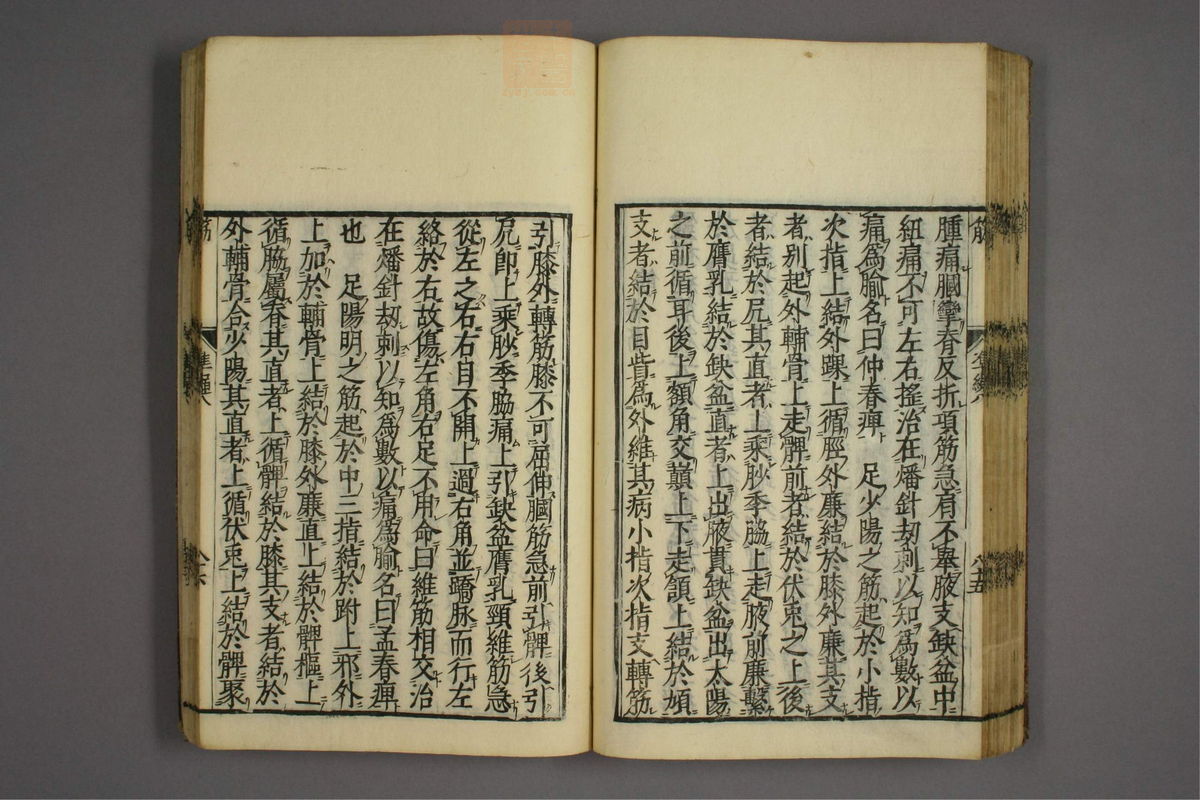 腫痛膕攣脊反折項筋急肩不舉腋支缺盆中
紐痛不可左右搖治在燔針刼刺以知爲數以
痛爲腧名曰仲春痺　足少陽之筋起於小指
次指上結外踝上循脛外廉結於膝外廉其支
者別起外輔骨上走髀前者結於伏兎之上後
者結於尻其直者上乘䏚季脇上走腋前廉繫
於膺乳結於缺盆直者上出腋貫缺盆出太陽
之前循耳後上額角交巔上下走頷上結於頄
支者結於目眥爲外維其病小指次指支轉筋
引膝外轉筋膝不可屈伸膕筋急前引髀後引
尻卽上乘䏚季脇痛上引缺盆膺乳頸維筋急
從左之右右目不開上過右角並蹻脉而行左
絡於右故傷左角右足不用命曰維筋相交治
在燔針刼刺以知爲數以痛爲腧名曰孟春痺
也　足陽明之筋起於中三指結於跗上邪外
上加於輔骨上結於膝外廉直上結於髀樞上
循脇屬脊其直者上循骭結於膝其支者結於
外輔骨合少陽其直者上循伏兎上結於髀聚